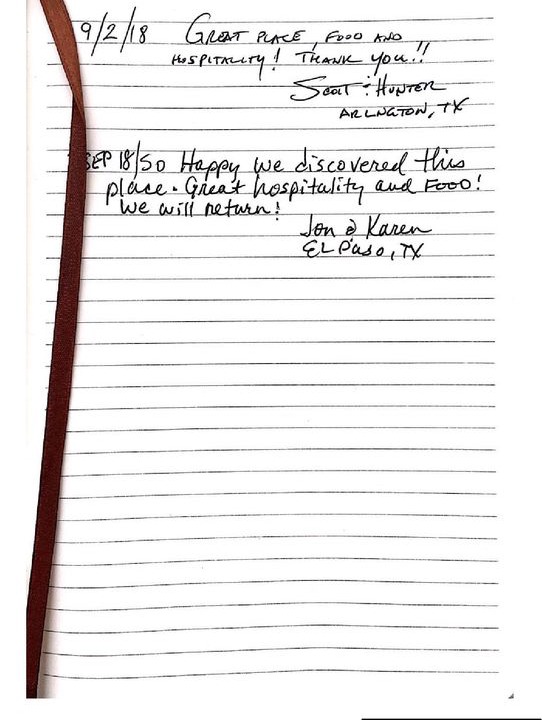 9/2/18 GREAT PLACE, FOOD AND
HOSPITALITY! THANK YOU!!
SCOTT & HUNTER
ARLNGTON, TX
SEP 18/So Happy we discovered this
place. Great hospitality and FOOD!
We will return!
Jon & Karen
EL Paso, TX